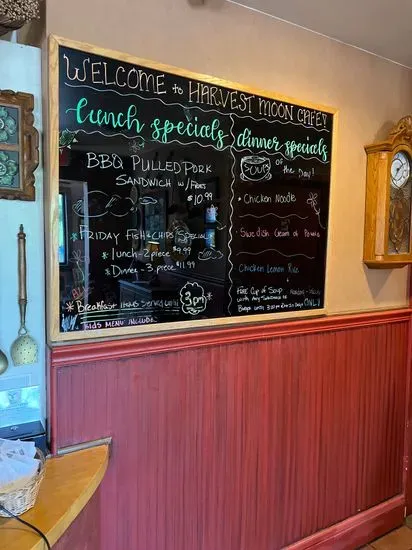 WELCOME to HARVEST MOON CAFE!
lunch specials
BBQ PULLED PORK
SANDWICH W/ FRIES
$10.99
FRIDAY FISH & CHIPS SPECIAL
lunch - 2 piece $9.99
Dinner - 3 piece $11.99
Breakfast ITEMS SERVED UNTIL 3pm
KIDS MENU
dinner specials
SOUPS of the DAY!
Chicken Noodle
Swedish Cream of Potato
Chicken Lemon Rice
FREE CUP OF SOUP
WITH ANY SANDWICH OR
ONLY